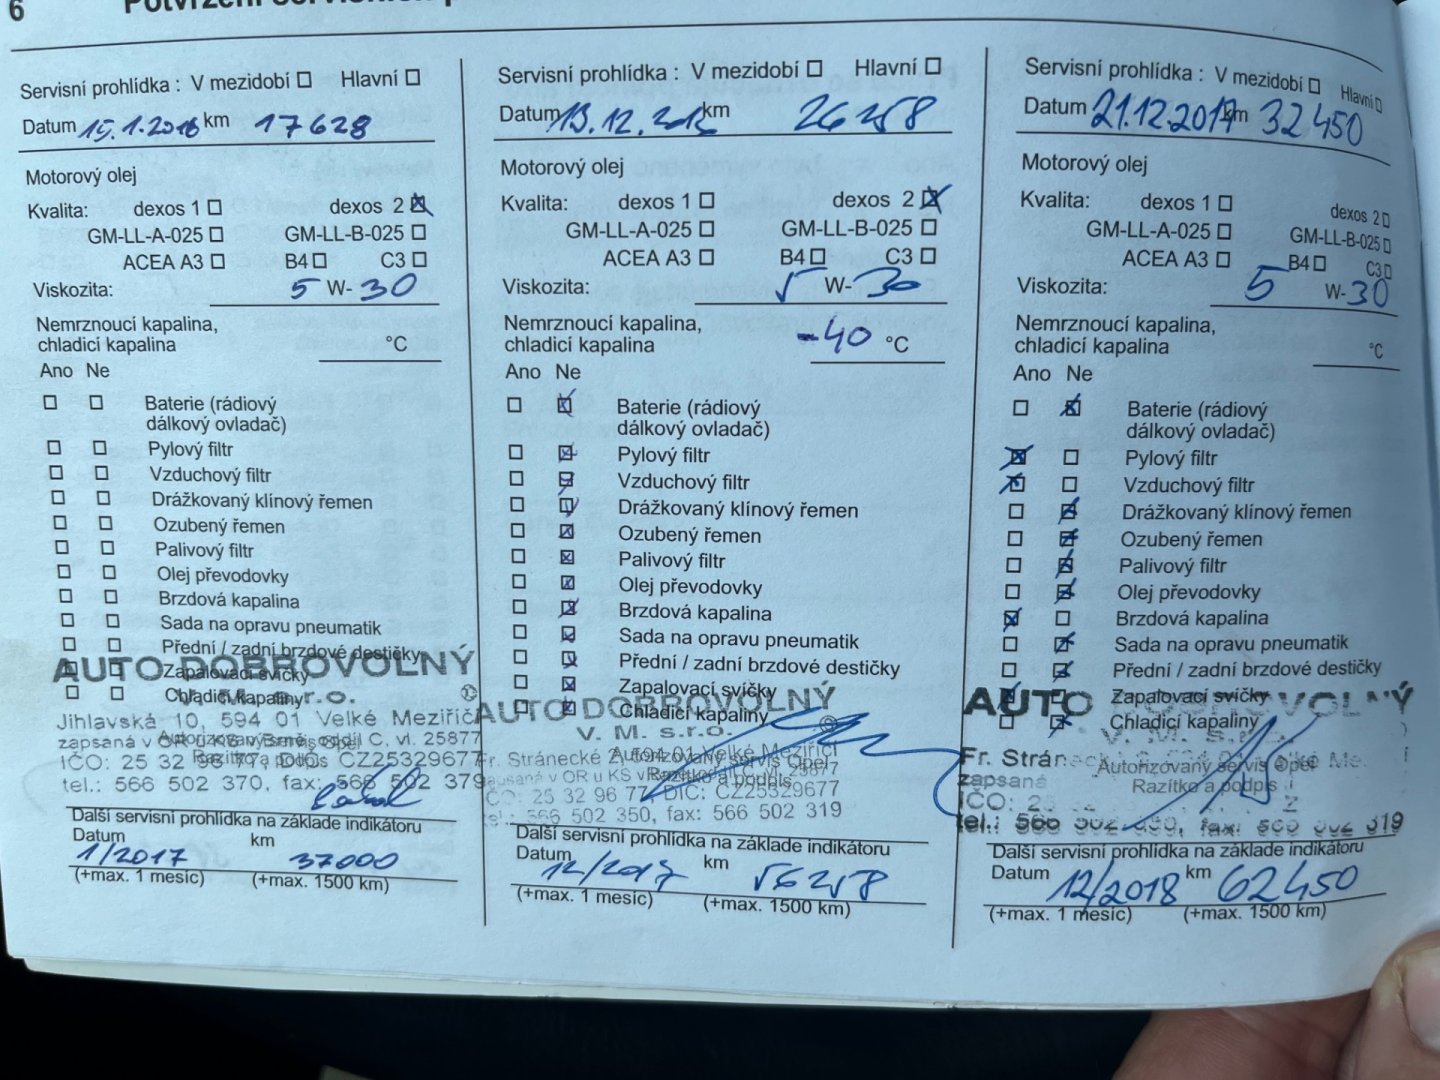 6
Servisní prohlídka : V mezidobí Hlavní
Datum 15.1.2016 km 17628
Motorový olej
Kvalita: dexos 1 dexos 2
GM-LL-A-025 GM-LL-B-025
ACEA A3 B4 C3
Viskozita: 5 W- 30
Nemrznoucí kapalina,
chladicí kapalina °C
Ano Ne
Baterie (rádiový
dálkový ovladač)
Pylový filtr
Vzduchový filtr
Drážkovaný klínový řemen
Ozubený řemen
Palivový filtr
Olej převodovky
Brzdová kapalina
Sada na opravu pneumatik
Přední / zadní brzdové destičky
AUTO DOBROVOLNÝ
Zapalovací svíčky
Chladicí kapaliny
V. M. s.r.o.
Jihlavská 10, 594 01 Velké Meziříčí
Autorizovaný servis Opel
zapsaná v OR u KS v Brně, oddíl C, vl. 25877
Razítko a podpis
IČO: 25 32 96 77, DIČ: CZ25329677
tel.: 566 502 370, fax: 566 502 379
Další servisní prohlídka na základe indikátoru
Datum km
1/2017 37000
(+max. 1 mesíc) (+max. 1500 km)
Servisní prohlídka : V mezidobí Hlavní
Datum 13.12.2016 km 26258
Motorový olej
Kvalita: dexos 1 dexos 2
GM-LL-A-025 GM-LL-B-025
ACEA A3 B4 C3
Viskozita: 5 W- 30
Nemrznoucí kapalina,
chladicí kapalina -40 °C
Ano Ne
Baterie (rádiový
dálkový ovladač)
Pylový filtr
Vzduchový filtr
Drážkovaný klínový řemen
Ozubený řemen
Palivový filtr
Olej převodovky
Brzdová kapalina
Sada na opravu pneumatik
Přední / zadní brzdové destičky
Zapalovací svíčky
AUTO DOBROVOLNÝ
Chladicí kapaliny
V. M. s.r.o.
Fr. Stránecké 594 01 Velké Meziříčí
Autorizovaný servis Opel
zapsaná v OR u KS v 25877
Razítko a podpis
IČO: 25 32 96 77, DIČ: CZ25329677
tel.: 566 502 350, fax: 566 502 319
Další servisní prohlídka na základe indikátoru
Datum km
12/2017 56258
(+max. 1 mesíc) (+max. 1500 km)
Servisní prohlídka : V mezidobí Hlavní
Datum 21.12.2017 km 32450
Motorový olej
Kvalita: dexos 1 dexos 2
GM-LL-A-025 GM-LL-B-025
ACEA A3 B4 C3
Viskozita: 5 W- 30
Nemrznoucí kapalina,
chladicí kapalina °C
Ano Ne
Baterie (rádiový
dálkový ovladač)
Pylový filtr
Vzduchový filtr
Drážkovaný klínový řemen
Ozubený řemen
Palivový filtr
Olej převodovky
Brzdová kapalina
Sada na opravu pneumatik
Přední / zadní brzdové destičky
Zapalovací svíčky
AUTO DOBROVOLNÝ
Chladicí kapaliny
V. M. s.r.o.
Autorizovaný servis Opel
zapsaná
Razítko a podpis
tel.: 566 502 350, fax: 566 502 319
Další servisní prohlídka na základe indikátoru
Datum km
12/2018 62450
(+max. 1 mesíc) (+max. 1500 km)